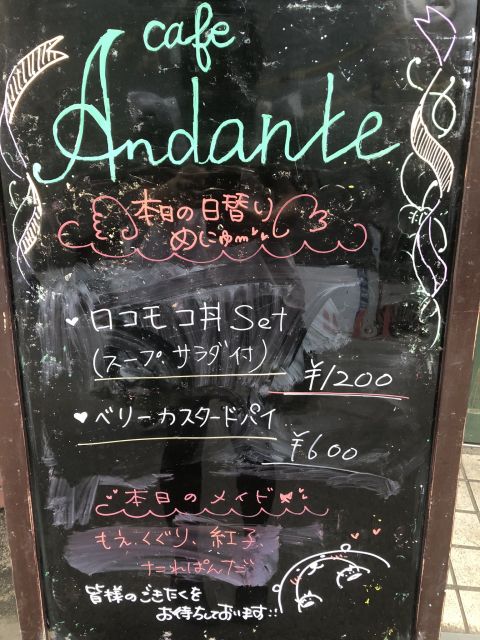 cafe
Andante
本日の日替り
めにゅm
ロコモコ丼 Set
(スープ サラダ付)
¥1200
ベリーカスタードパイ
¥600
本日のメイド
もえ、くぐり、紅子、
たれぱんだ
皆様のごきたくを
お待ちしております!!